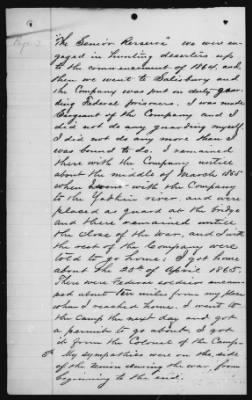 Page 2
"The Senior Reserve" we were en-
gaged in hunting deserters up
to the commencement of 1864, and
then we went to Salisbury and
the Company was put on duty guar-
ding Federal prisoners. I was made
Sergeant of the Company and I
did not do any guarding myself
I did not do any more than I
was bound to do. I remained
there with the Company until
about the middle of March 1865
when I went with the Company
to the Yadkin river and were
placed as guard at the bridge
and there remained until
the close of the war, and I with
the rest of the Company were
told to go home; I got home
about the 20th of April 1865.
There were Federal soldiers encam-
ped about two miles from my place
when I reached home. I went to
the camp the next day and got
a permit to go about. I got
it from the Colonel of the Camp-
My sympathies were on the side
of the Union during the war, from
beginning to the end.